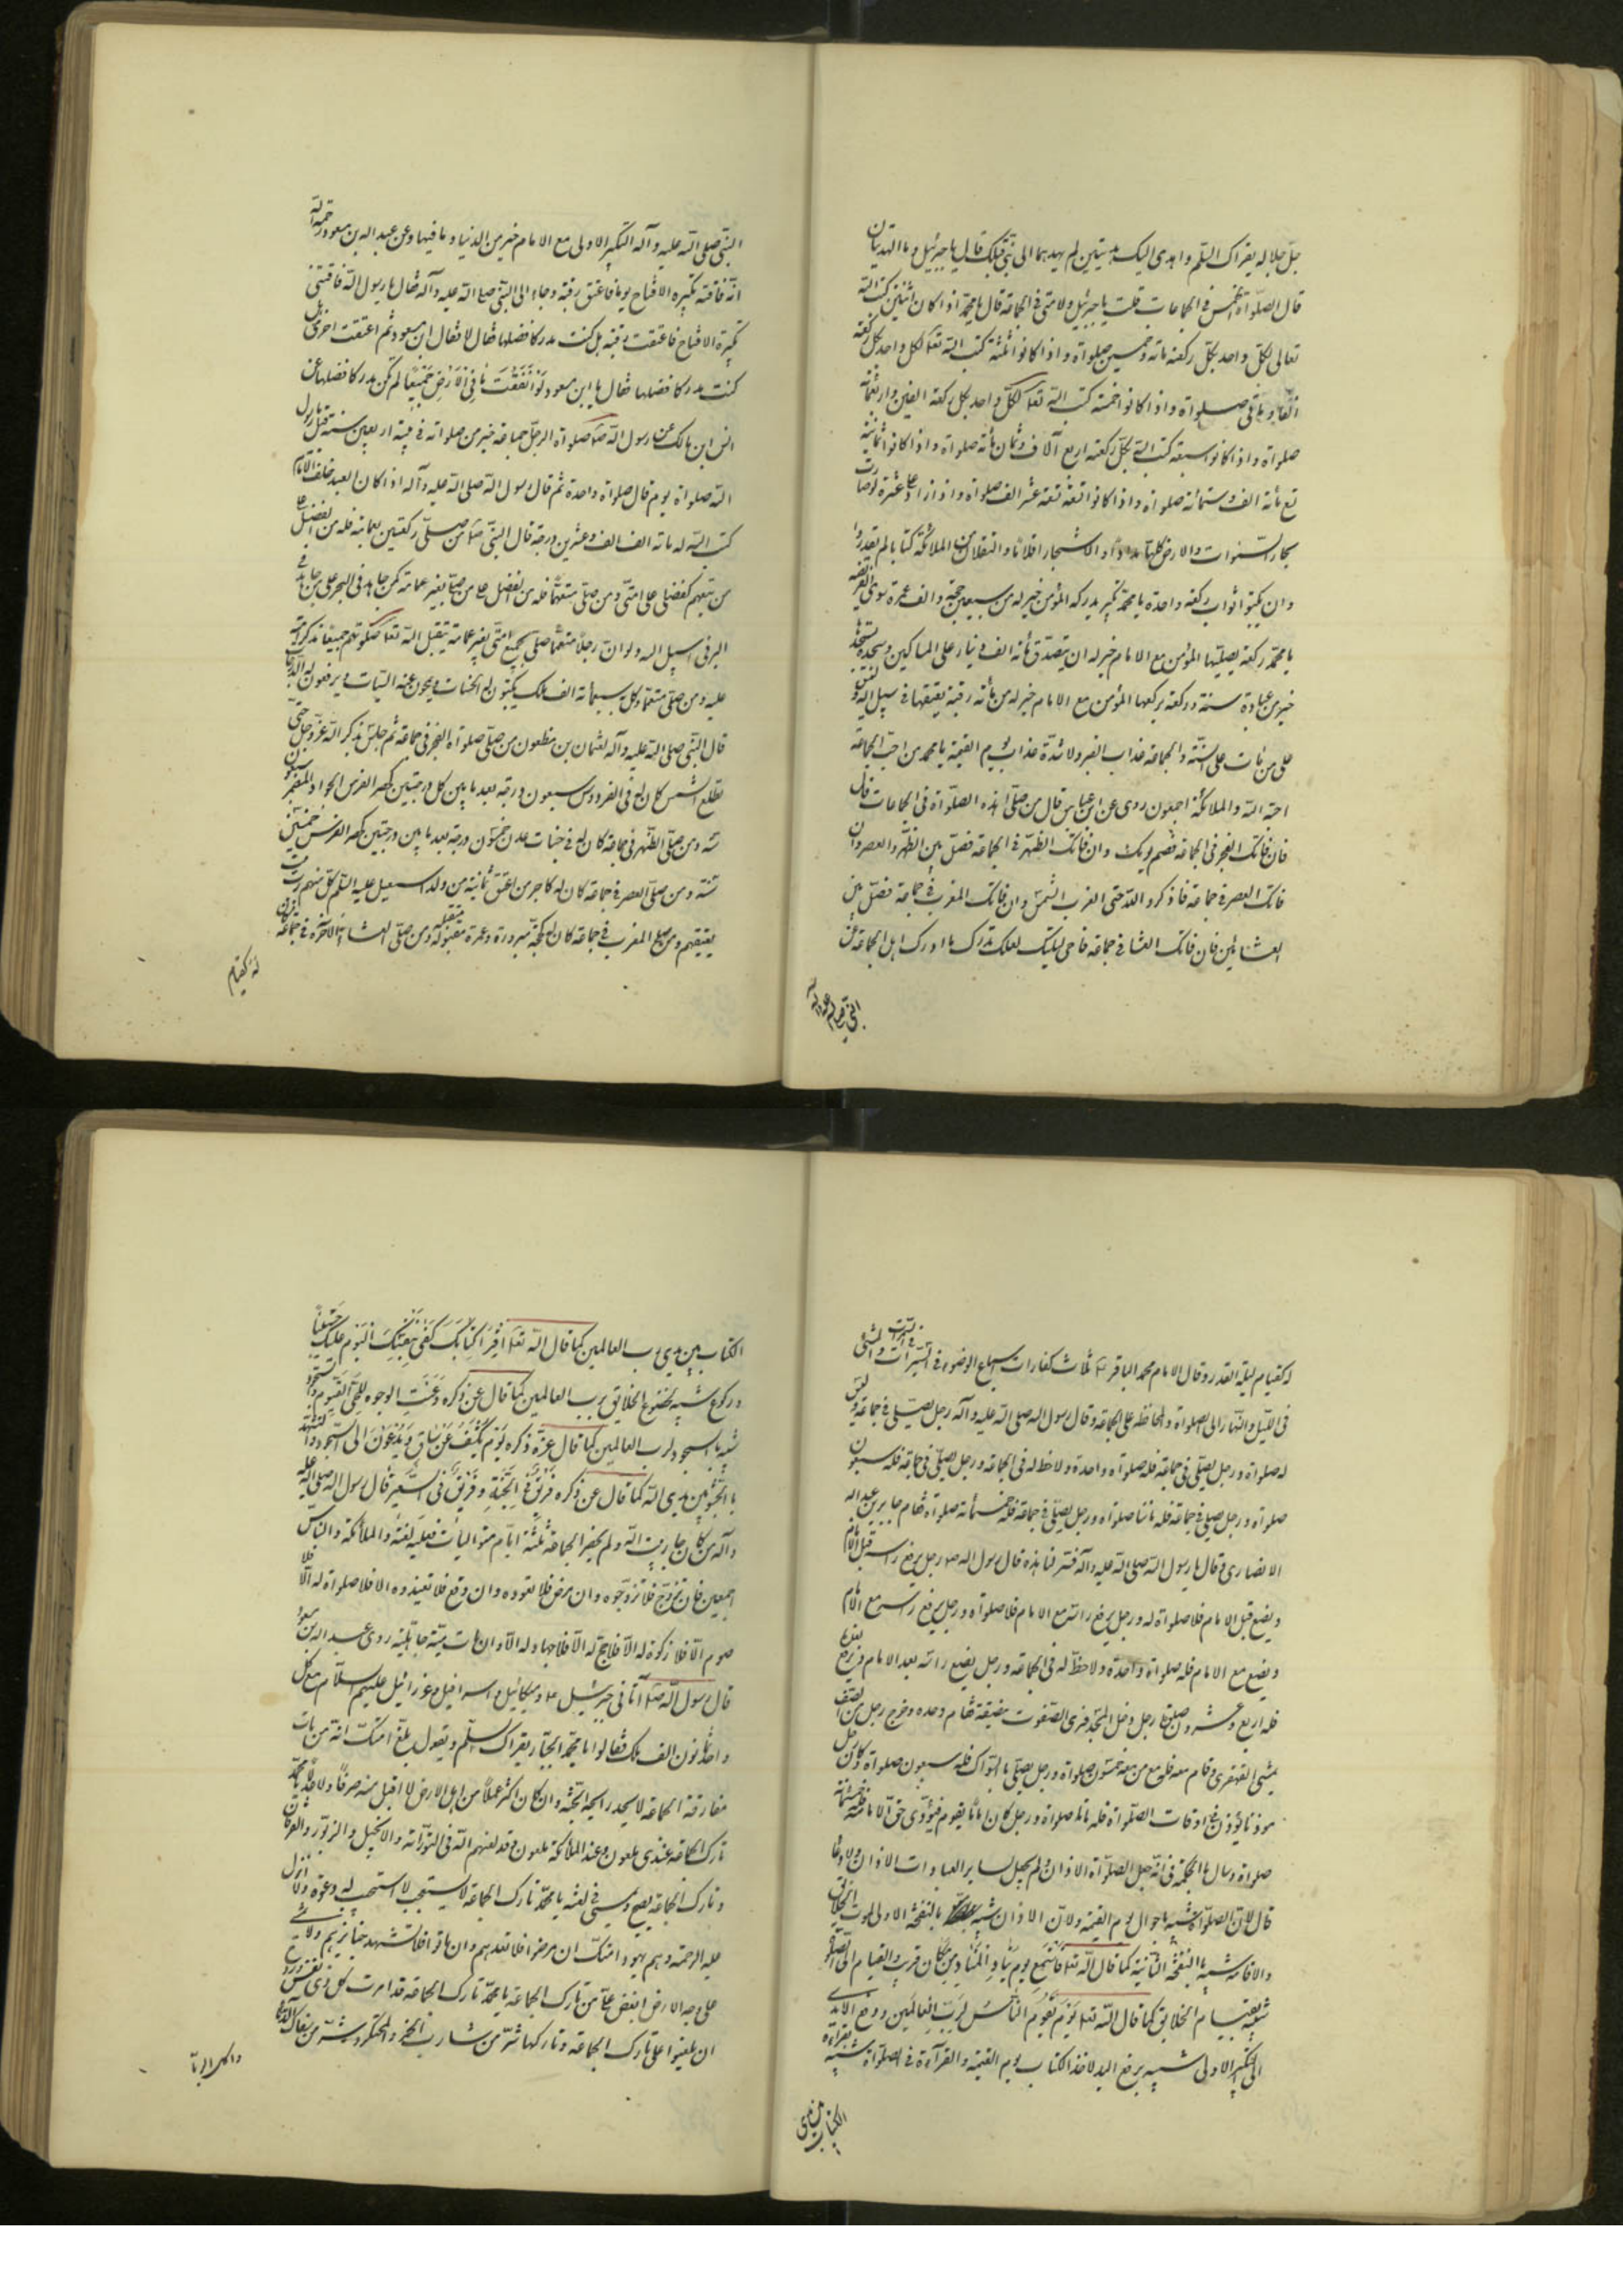 جل جلاله یقراک السلم واهدی الیک هدیتین لم یهدهما الی نبی قبلک قال یا جبرئیل وما الهدیتان
قال الصلواة الخمس فی الجماعات قلت یا جبرئیل ولامتی فی الجماعة قال یا محمد اذا کان اثنین کتب الله
تعالی لکل واحد بکل رکعته مائة وخمسین صلواة واذا کانوا ثلثة کتب الله تعا لکل واحد بکل رکعته
صلواة واذا کانوا خمسة کتب الله تعا لکل واحد بکل رکعة الفین واربعمائة
صلواة واذا کانوا سبعة کتب الله بکل رکعته اربع آلاف وثمان مائة صلواة واذا کانوا ثمانیة
تسع مائة الف وستمائة صلواة واذا کانوا تسعة تسعة عشر الف صلواة واذا زاد علی عشرة لو صارت
بحار السموات والارض کلها مداداً والاشجار اقلاماً والثقلان مع الملائکة کتابا لم یقدروا
وان یکتبوا ثواب رکعة واحدة یا محمد تکبیر یدرکه المؤمن خیر له من سبعین حجة والف عمرة سوی الفریضه
یا محمد رکعة یصلیها المؤمن مع الامام خیر له ان یتصدق مائة الف دینار علی المساکین وسجدة یسجدها
خیر من عبادة سنة ورکعة یرکعها المؤمن مع الامام خیر له من مائة رقبة یعتقها فی سبیل الله ولیس
علی من مات علی السنة والجماعة عذاب القبر ولا شدة عذاب یوم القیمة یا محمد من احب الجماعة
احبه الله والملائکة اجمعون روی عن ابن عباس قال من صلی هذه الصلواة فی الجماعات قال
فان فاتک الفجر فی الجماعة فصم یومک وان فاتک الظهر فی الجماعة فصل بین الظهر والعصر وان
فاتک العصر فی جماعة فاذکروا الله حتی الغرب الشمس وان فاتک المغرب فی جماعة فصل بین
العشائین فان فاتک العشا فی جماعة فاحی لیلتک لعلک تدرک ما ادرک اهل الجماعة عن
النبی صلی الله علیه وآله
النبی صلی الله علیه وآله التکبیر الاولی مع الامام خیر من الدنیا وما فیها وعن عبد الله بن مسعود رحمه الله
انه فاتته تکبیره الافتتاح یوما فاعتق رقبة وجاء الی النبی صلی الله علیه وآله فقال یا رسول الله فاتتنی
تکبیرة الافتتاح فاعتقت رقبة هل کنت مدرکا فضلها فقال لا فقال ابن مسعود ثم اعتقت اخری هل
کنت مدرکا فضلها فقال یا ابن مسعود ولو انفقت ما فی الارض جمیعا لم تکن مدرکا فضلها عن
انس ابن مالک عن رسول الله صلعم صلواة الرجل جماعة خیر من صلواته فی بیته اربعین سنة قیل یا رسول
الله صلواة یوم قال صلواة واحدة ثم قال رسول الله صلی الله علیه وآله اذا کان العبد خلف الامام
کتب الله له مائة الف الف وعشرین درجة قال النبی صلعم من صلی رکعتین بعمامة فله من الفضل علی
من یتعمم کفضلی علی امتی ومن صلی متعمما فله من الفضل علی من صلی بغیر عمامة کمن جاهد فی البحر علی من جاهد فی
البر فی سبیل الله ولو ان رجلا متعمما صلی بجمیع امتی بغیر عمامة یتقبل الله تعا صلوتهم جمیعا
علیه ومن صلی متعمما وکل سبعمائة الف ملک یکتبون له الحسنات ویمحون عنه السیئات ویرفعون له الدرجات
قال النبی صلی الله علیه وآله لعثمان بن مظعون من صلی صلواة الفجر فی جماعة ثم جلس یذکر الله عز وجل حتی
تطلع الشمس کان له فی الفردوس سبعون درجة بعد ما بین کل درجتین کحضر الفرس الجواد المضمر سبعون
سنة ومن صلی الظهر فی جماعة کان له فی جنات عدن خمسون درجة بعد ما بین درجتین کحضر الفرس خمسین
سنة ومن صلی العصر فی جماعة کان له کاجر من اعتق ثمانیة من ولد اسمعیل علیه السلم کل منهم رب بیت
یعتقهم ومن صلی المغرب فی جماعة کان له کحجة مبرورة وعمرة متقبلة ومن صلی العشاء الآخرة فی جماعة کان
له کقیام
له کقیام لیلة القدر وقال الامام محمد الباقر ع ثلاث کفارات اسباغ الوضوء فی السبرات والمشی
فی اللیل والنهار الی الصلواة والمحافظة علی الجماعة وقال رسول الله صلی الله علیه وآله رجل یصلی فی جماعة ولیس
له صلواة ورجل یصلی فی جماعة فله صلواة واحدة ولا حظ له فی الجماعة ورجل یصلی فی جماعة فله سبعون
صلواة ورجل یصلی فی جماعة فله مائتا صلواة ورجل یصلی فی جماعة فله خمسمائة صلواة فقام جابر بن عبد الله
الانصاری وقال یا رسول الله صلی الله علیه وآله فسر لنا هذه قال رسول الله ص رجل یرفع راسه قبل الامام
ویضع قبل الامام فلا صلواة له ورجل یرفع راسه مع الامام فلا صلواة ورجل یرفع راسه مع الامام
ویضع مع الامام فله صلواة واحدة ولا حظ له فی الجماعة ورجل یضع راسه بعد الامام ویرفع بعده
فله اربع وعشرون صلوة رجل دخل المسجد فرای الصفوف مضیقة فقام وحده وخرج رجل من الصف
یمشی القهقری وقام معه فله مع من معه خمسون صلواة ورجل یصلی بالسواک فله سبعون صلواة وکان رجل
موذنا یؤذن فی اوقات الصلواة فله مائتا صلواة ورجل کان اماما یقوم فیؤدی حق الامامة فله خمسمائة
صلواة وسال ما الحکمة فی انه جعل للصلواة الاذان ولم یجعل لسایر العبادات الاذان ولا دعا
قال لان الصلواة شبیه باحوال یوم القیمة ولان الاذان شبیه بالنفخة الاولی لموت الخلائق
والاقامة شبیه بالنفخة الثانیة کما قال الله تعا واستمع یوم یناد المناد من مکان قریب والقیام الی الصلواة
شبیه بقیام الخلایق کما قال الله تعا یوم یقوم الناس لرب العالمین ورفع الایدی
الی التکبیر الاولی شبیه برفع الید لاخذ الکتاب یوم القیمة والقرآءة فی الصلواة شبیه بقراءة
الکتاب بین یدی
الکتاب بین یدی رب العالمین کما قال الله تعا اقرا کتابک کفی بنفسک الیوم علیک حسیبا
ورکوع شبیه بخضوع الخلایق برب العالمین کما قال عز ذکره وعنت الوجوه للحی القیوم والسجود
شبه بالسجود لرب العالمین کما قال عز ذکره یوم یکشف عن ساق ویدعون الی السجود والتشهد
بالجثو بین یدی الله کما قال عز ذکره فریق فی الجنة وفریق فی السعیر قال رسول الله صلی الله علیه
وآله من کان جار بیت الله ولم یحضر الجماعة ثلثة ایام متوالیات فعلیه لعنة الله والملائکة والناس
اجمعین فان تزوج فلا تزوجوه وان مرض فلا تعودوه وان وقع فلا تعیندوه الا فلا صلواة له الا فلا
صوم الا فلا زکوة له الا فلا حج له الا فلا جهاد له الا وان مات میتة جاهلیة روی عبد الله بن مسعود
قال رسول الله صلعم آتانی جبرئیل ع ومیکائیل واسرافیل وعزرائیل علیهم السلام مع کل
واحد ثمانون الف ملک فقالوا یا محمد الجبار یقراک السلم ویقول بلغ امتک انه من مات
مفارقة الجماعة لا یجد رایحة الجنة وان کان اکثر عملا من اهل الارض لا اقبل منه صرفا ولا عدلا یا محمد
تارک الجماعة عندی ملعون وعند الملائکة ملعون وقد لعنهم الله فی التوراة والانجیل والزبور والفرقان
وتارک الجماعة یصبح ویمسی فی لعنة یا محمد تارک الجماعة لا یستجب لا استجب له دعوة ولا انزل
علیه الرحمة وهم یهود امتک ان مرضوا فلا تعدهم وان ماتوا فلا تشهد جنایزهم ولا یمشی
علی وجه الارض ابغض علی من تارک الجماعة یا محمد تارک الجماعة قد امرت کل ذی نفس وروح
ان یلعنوا علی تارک الجماعة وتارکها شر من شارب الخمر والمحتکر وشر من سفاک الدماء
واکل الربا